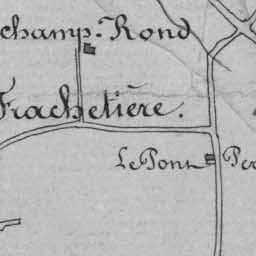 champ-Rond
Frachetière.
Le Pont
Per